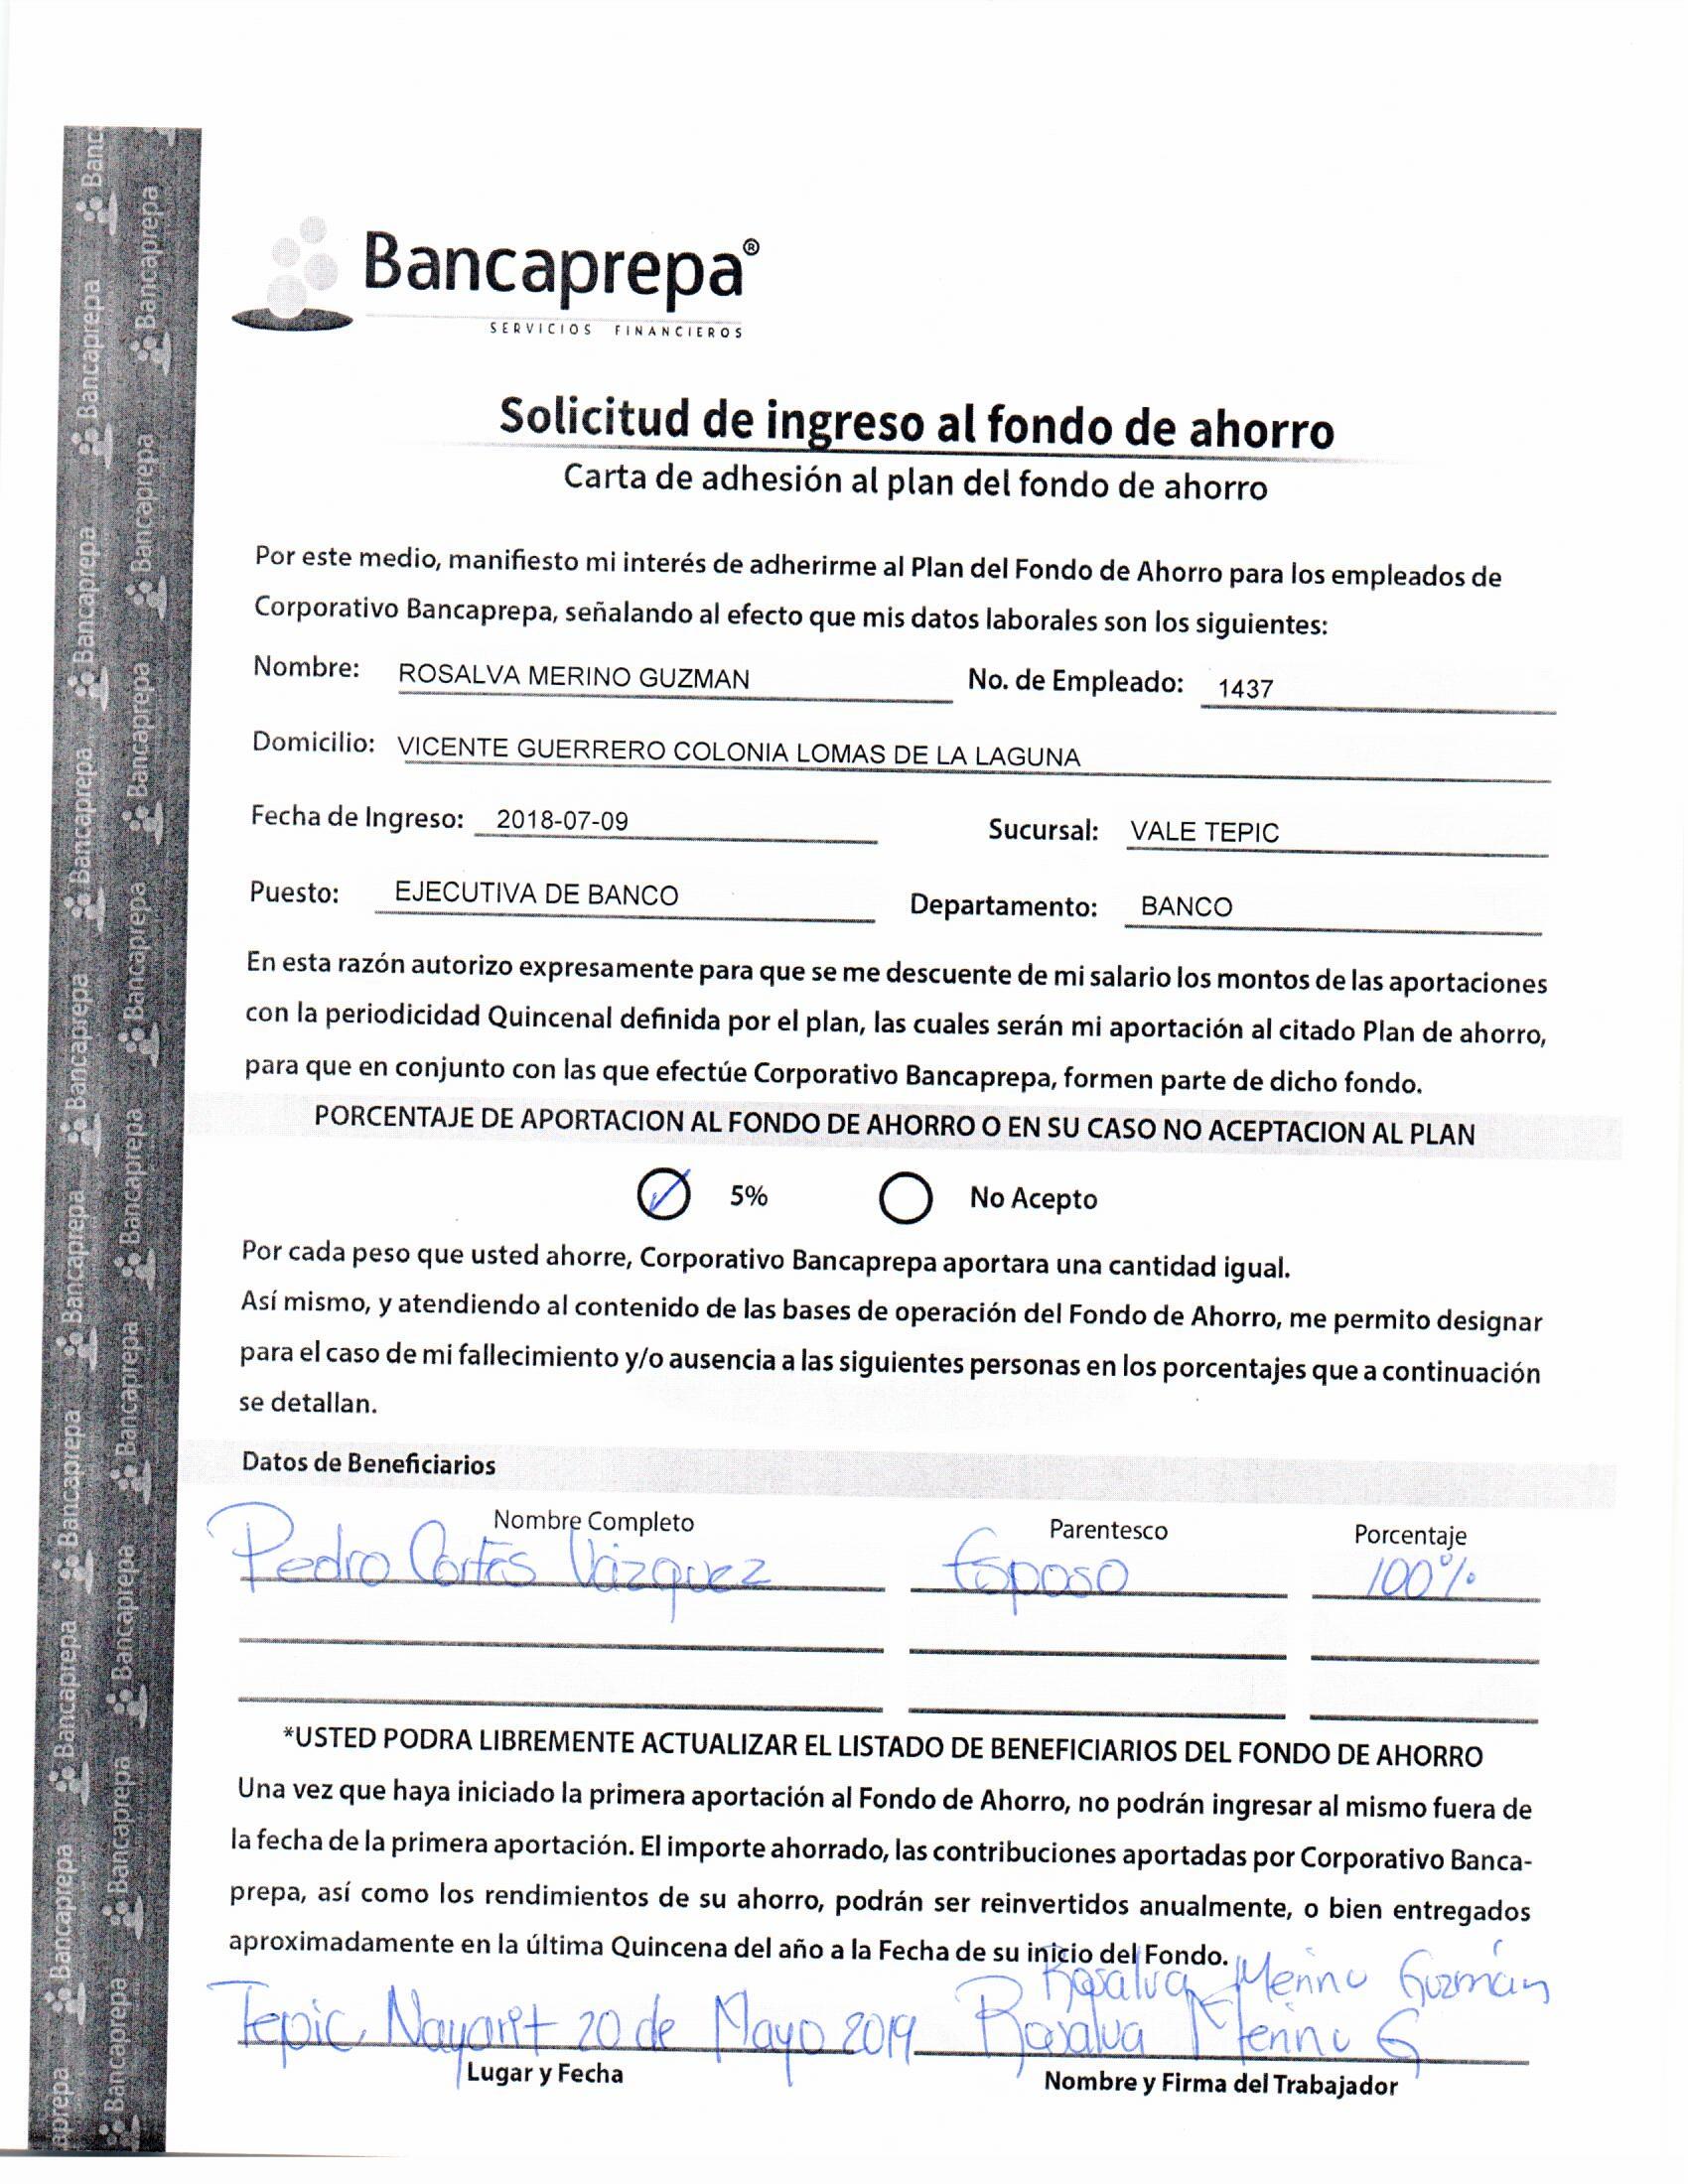 Bancaprepa®
SERVICIOS FINANCIEROS
Solicitud de ingreso al fondo de ahorro
Carta de adhesión al plan del fondo de ahorro
Por este medio, manifiesto mi interés de adherirme al Plan del Fondo de Ahorro para los empleados de
Corporativo Bancaprepa, señalando al efecto que mis datos laborales son los siguientes:
Nombre: ROSALVA MERINO GUZMAN No. de Empleado: 1437
Domicilio: VICENTE GUERRERO COLONIA LOMAS DE LA LAGUNA
Fecha de Ingreso: 2018-07-09 Sucursal: VALE TEPIC
Puesto: EJECUTIVA DE BANCO Departamento: BANCO
En esta razón autorizo expresamente para que se me descuente de mi salario los montos de las aportaciones
con la periodicidad Quincenal definida por el plan, las cuales serán mi aportación al citado Plan de ahorro,
para que en conjunto con las que efectúe Corporativo Bancaprepa, formen parte de dicho fondo.
PORCENTAJE DE APORTACION AL FONDO DE AHORRO O EN SU CASO NO ACEPTACION AL PLAN
5% No Acepto
Por cada peso que usted ahorre, Corporativo Bancaprepa aportara una cantidad igual.
Así mismo, y atendiendo al contenido de las bases de operación del Fondo de Ahorro, me permito designar
para el caso de mi fallecimiento y/o ausencia a las siguientes personas en los porcentajes que a continuación
se detallan.
Datos de Beneficiarios
Nombre Completo Parentesco Porcentaje
Pedro Cortés Vázquez Esposo 100%
*USTED PODRA LIBREMENTE ACTUALIZAR EL LISTADO DE BENEFICIARIOS DEL FONDO DE AHORRO
Una vez que haya iniciado la primera aportación al Fondo de Ahorro, no podrán ingresar al mismo fuera de
la fecha de la primera aportación. El importe ahorrado, las contribuciones aportadas por Corporativo Banca-
prepa, así como los rendimientos de su ahorro, podrán ser reinvertidos anualmente, o bien entregados
aproximadamente en la última Quincena del año a la Fecha de su inicio del Fondo.
Rosalva Merino Guzmán
Tepic, Nayarit 20 de Mayo 2019 Rosalva Merino G
Lugar y Fecha Nombre y Firma del Trabajador